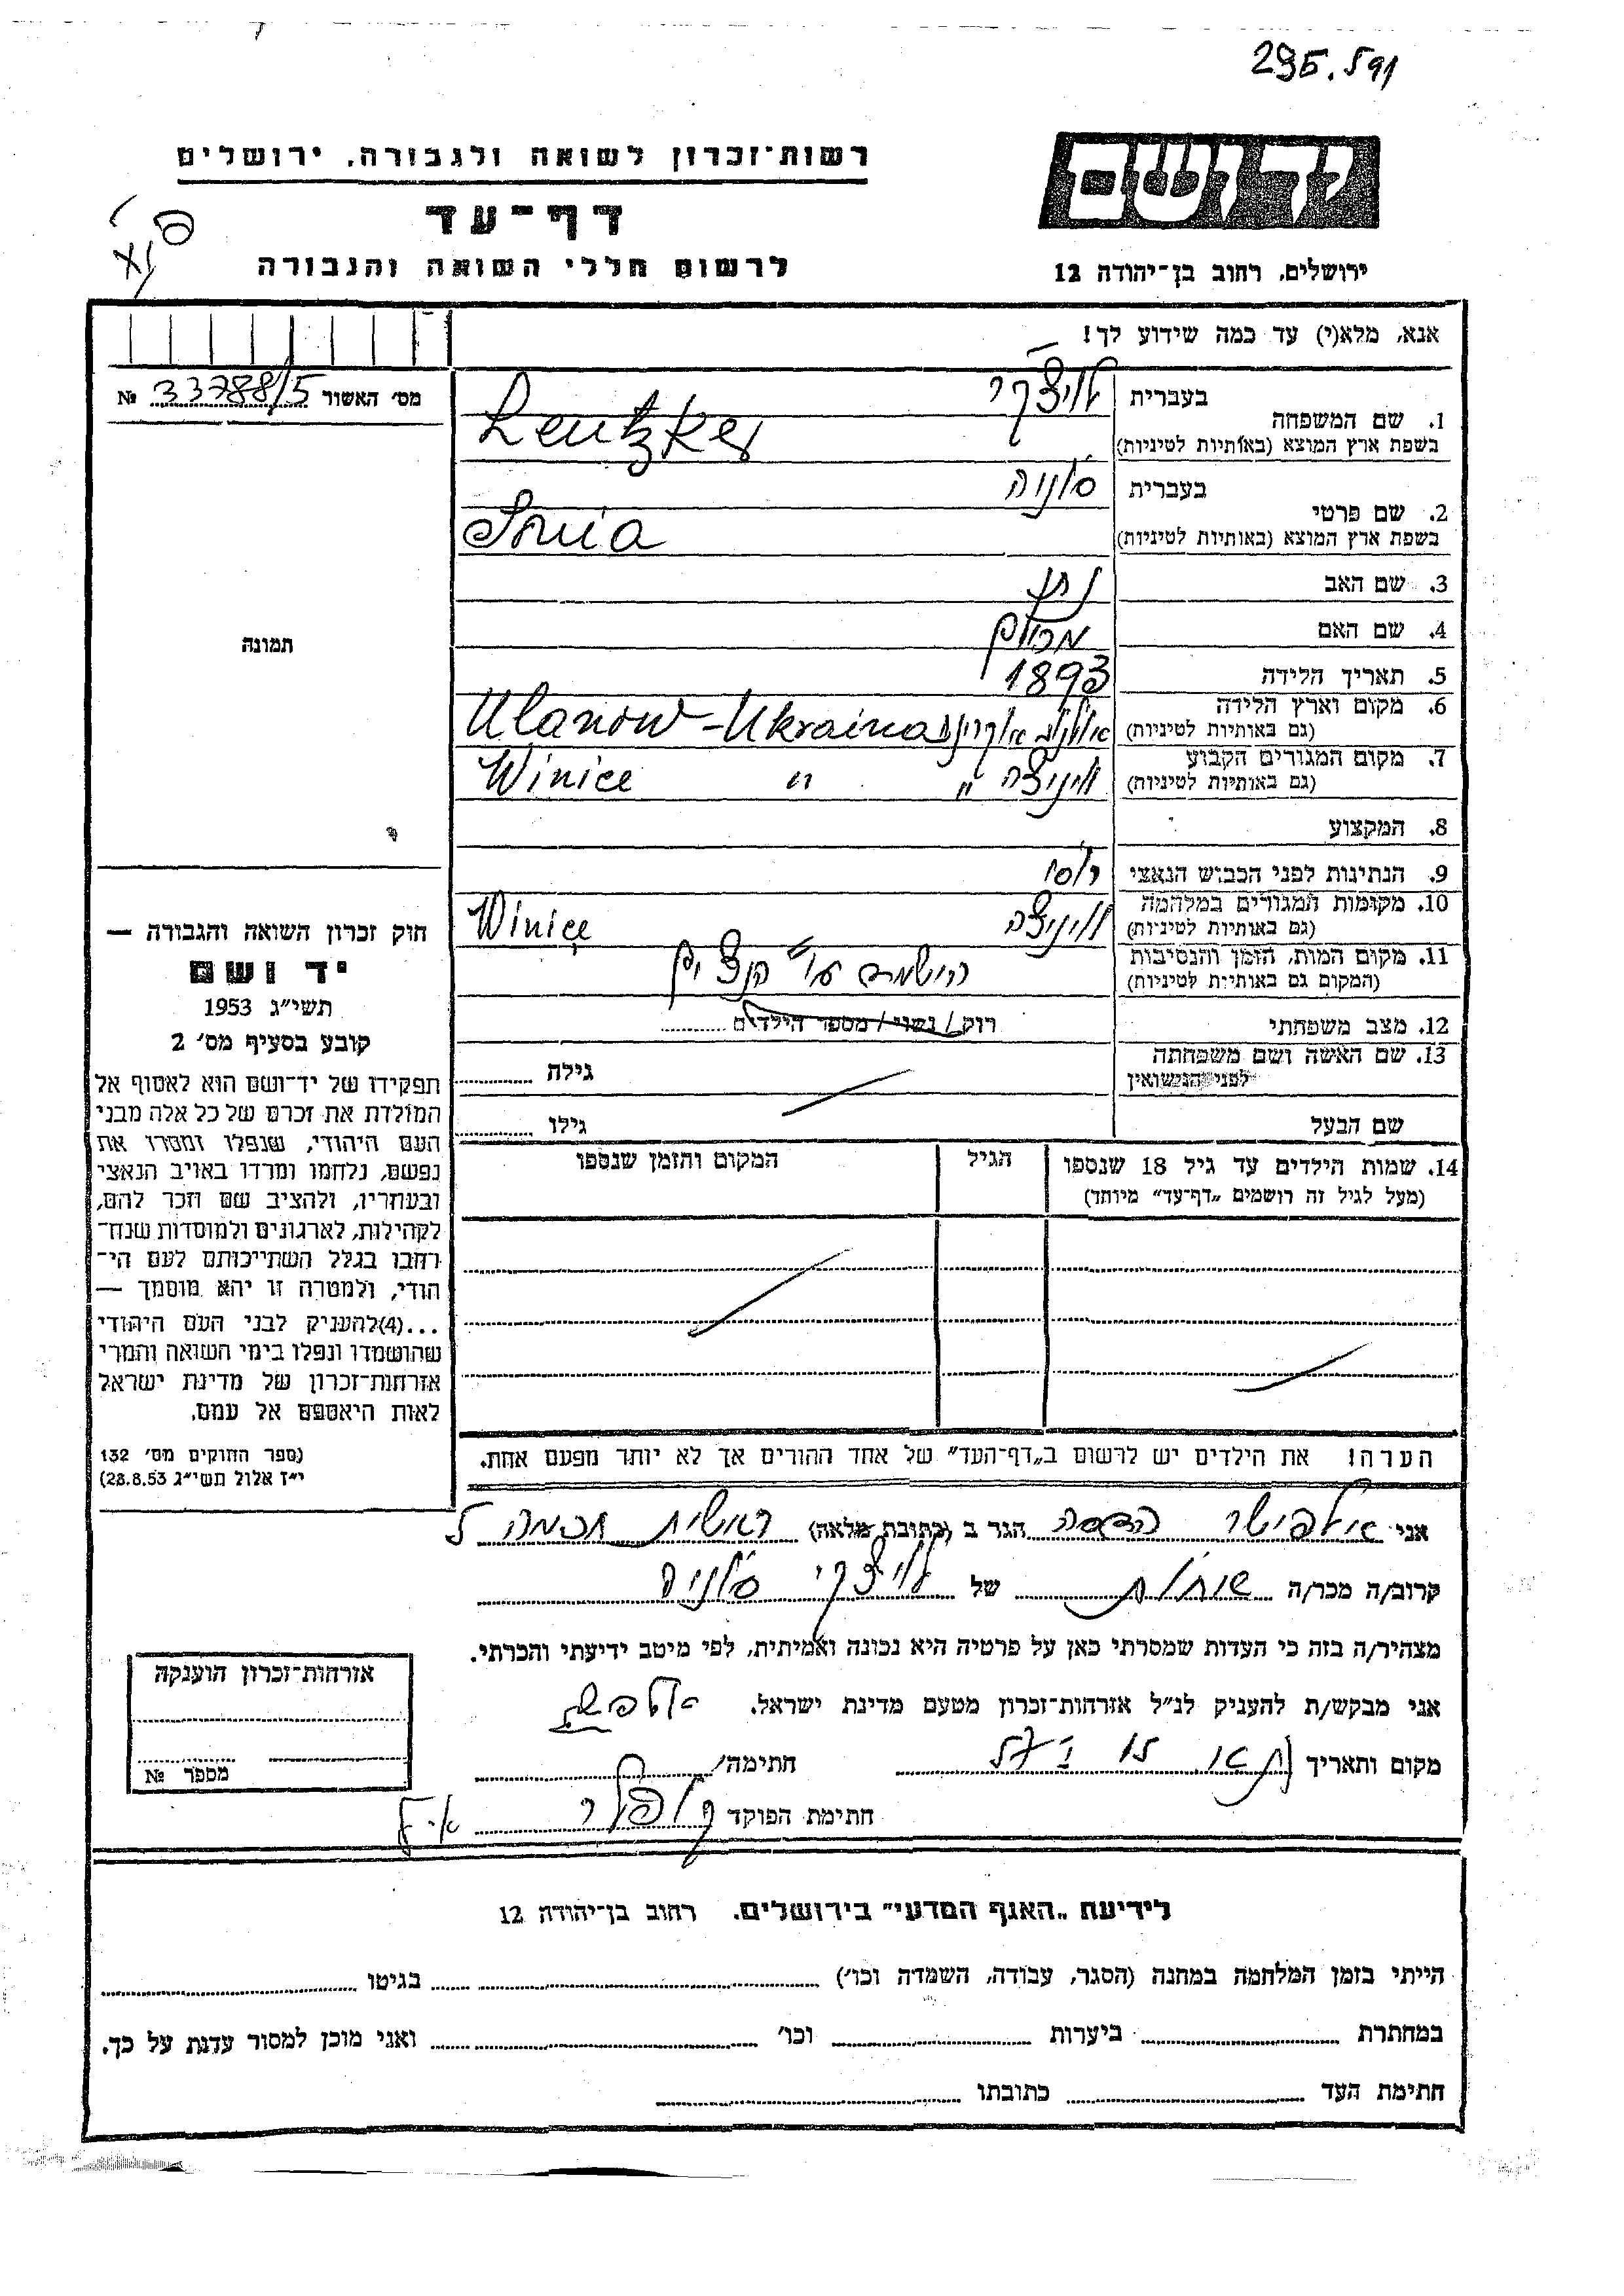 295.591
רשות־זכרון לשואה ולגבורה, ירושלים
יד ושם
דף־עד
לרשום חללי השואה והגבורה
ירושלים, רחוב בן־יהודה 12
אנא, מלא(י) עד כמה שידוע לך!
מס׳ האשור № 33788/5
1. שם המשפחה
בעברית לויצקי
בשפת ארץ המוצא (באותיות לטיניות) Leutzker
2. שם פרטי
בעברית סוניה
בשפת ארץ המוצא (באותיות לטיניות) Sonia
3. שם האב נתן
4. שם האם
5. תאריך הלידה 1893
6. מקום וארץ הלידה
(גם באותיות לטיניות) אולנוב אוקריינה Ulanow - Ukraina
7. מקום המגורים הקבוע
(גם באותיות לטיניות) ויניצה " Winice "
8. המקצוע
9. הנתינות לפני הכבוש הנאצי רוסי
10. מקומות המגורים במלחמה
(גם באותיות לטיניות) ויניצה Winice
11. מקום המות, הזמן והנסיבות
(המקום גם באותיות לטיניות) הושמדה ע"י הנצים
12. מצב משפחתי רוק / נשוי / מספר הילדים
13. שם האשה ושם משפחתה
לפני הנישואין גילה
שם הבעל גילו
14. שמות הילדים עד גיל 18 שנספו הגיל המקום והזמן שנספו
(מעל לגיל זה רושמים „דף־עד” מיוחד)
הערה! את הילדים יש לרשום ב„דף־העד” של אחד ההורים אך לא יותר מפעם אחת.
תמונה
חוק זכרון השואה והגבורה —
יד ושם
תשי״ג 1953
קובע בסעיף מס׳ 2
תפקידו של יד־ושם הוא לאסוף אל
המולדת את זכרם של כל אלה מבני
העם היהודי, שנפלו ומסרו את
נפשם, נלחמו ומרדו באויב הנאצי
ובעוזריו, ולהציב שם וזכר להם,
לקהילות, לארגונים ולמוסדות שנח־
רבו בגלל השתייכותם לעם הי־
הודי, ולמטרה זו יהא מוסמך —
...(4)להעניק לבני העם היהודי
שהושמדו ונפלו בימי השואה והמרי
אזרחות־זכרון של מדינת ישראל
לאות היאספם אל עמם.
(ספר החוקים מס׳ 132
י״ז אלול תשי״ג 28.8.53)
אני הדסה הגר ב (כתובת מלאה) ראשית חכמה 7
קרוב/ה מכר/ה אחות של לויצקי סוניה
מצהיר/ה בזה כי העדות שמסרתי כאן על פרטיה היא נכונה ואמיתית, לפי מיטב ידיעתי והכרתי.
אני מבקש/ת להעניק לנ״ל אזרחות־זכרון מטעם מדינת ישראל.
מקום ותאריך חתימה
חתימת הפוקד
אזרחות־זכרון הוענקה
מספר №
לידיעת „האגף המדעי” בירושלים, רחוב בן־יהודה 12
הייתי בזמן המלחמה במחנה (הסגר, עבודה, השמדה וכו׳) בגיטו
במחתרת ביערות וכו׳ ואני מוכן למסור עדות על כך.
חתימת העד כתובתו